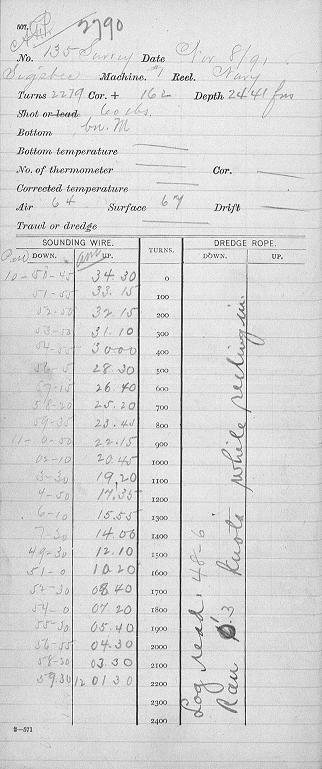 507.
2790
No. 135 Survey Date Nov 8/91
Sigsbee Machine. #1 Reel. Navy
Turns 2279 Cor. + 162 Depth 2441 fms
Shot or lead 60 lbs.
Bottom bn. M
Bottom temperature
No. of thermometer Cor.
Corrected temperature
Air 64 Surface 67 Drift
Trawl or dredge
SOUNDING WIRE. TURNS. DREDGE ROPE.
DOWN. UP. DOWN. UP.
10-50-45 34.30 0
51-55 33.15 100
52-50 32.15 200
53-50 31.10 300
54-55 30.00 400
56-5 28.30 500
57-15 26.40 600
58-20 25.20 700
59-35 23.45 800
11-0-50 22.15 900
02-10 20.45 1000
3-30 19.20 1100
4-50 17.35 1200
6-10 15.55 1300
7-30 14.00 1400
49-30 12.10 1500
51-0 10.20 1600
52-30 08.40 1700
54-0 07.20 1800
55-30 05.40 1900
56-55 04.30 2000
58-20 03.30 2100
59.30 12 01 30 2200
2300
2400
Log read. 48-6
Ran 0.3 knots while reeling in.
2-571